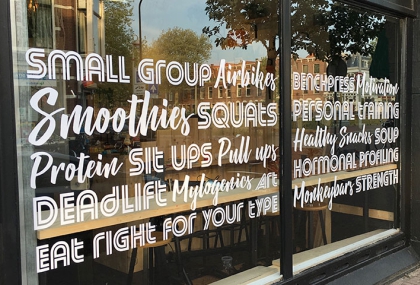 SMALL GROUP Airbikes
Smoothies SQUATS
Protein SIT UPS Pull ups
DEADLIFT Mylogenics Art
EAT RIGHT FOR YOUR TYPE
BENCHPRESS Motivation
PERSONAL TRAINING
Healthy Snacks SOUP
HORMONAL PROFILING
Monkeybars STRENGTH